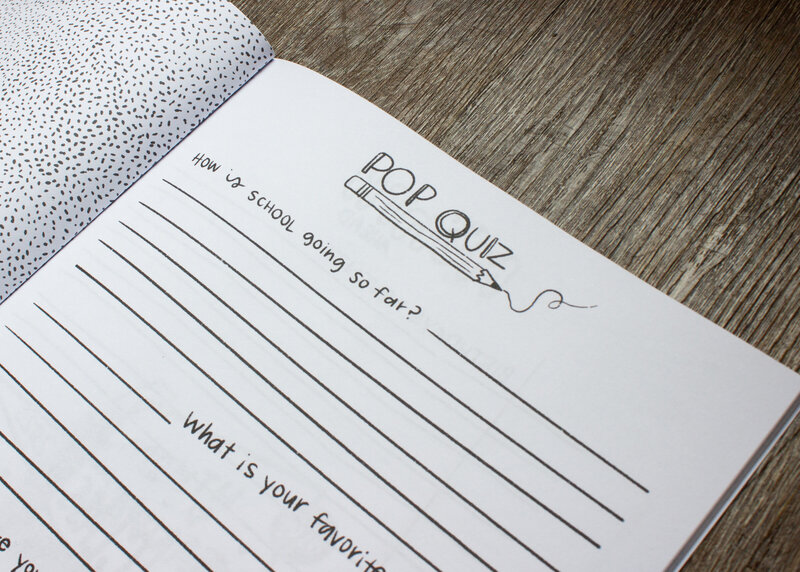 POP QUIZ
HOW is SCHOOL going so far?
What is your favorite
you